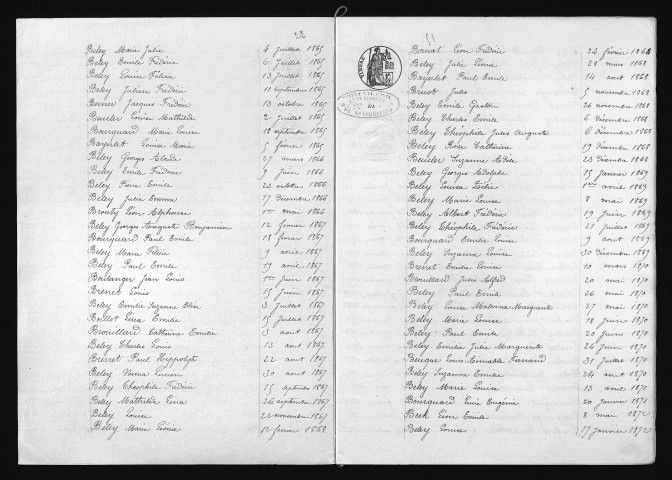 22
Beley Marie Julie 4 Juillet 1865
Beley Emile Frédéric 6 Juillet 1865
Beley Louise Félicie 13 Juillet 1865
Beley Julien Frédéric 11 septembre 1865
Bonner Jacques Frédéric 13 octobre 1865
Beucler Louise Mathilde 2 Juillet 1865
Bourquard Marie Louise 18 septembre 1865
Bayerlet Louise Marie 5 février 1865
Beley Georges 27 mars 1866
Beley Emile Frédéric 9 Juin 1866
Beley Pierre Emile 23 octobre 1866
Beley Julie Emma 17 décembre 1866
Brouty Léon Alphonse 1er mai 1866
Beley Georges Auguste Benjamin 12 février 1867
Bourquard Paul Emile 18 février 1867
Beley Marie Félicie 9 avril 1867
Beley Paul Emile 19 avril 1867
Boulanger Jean Louis 1er Juin 1867
Brenet Louis 15 Juin 1867
Beley Emélie Suzanne Elise 3 Juillet 1867
Billot Lina Emilie 15 Juillet 1867
Brouillard Catherine Emelie 3 aout 1867
Beley Charles Louis 13 aout 1867
Brenet Paul Hippolyte 22 aout 1867
Beley Numa Lucien 30 aout 1867
Beley Théophile Frédéric 15 septembre 1867
Beley Mathilde Lina 26 septembre 1867
Beley Louise 22 novembre 1867
Beley Marie Léonie 12 février 1868
Banat Léon Frédéric 24 février 1868
Beley Julie Lina 28 mars 1868
Bayerlet Paul Emile 14 aout 1868
Briot Jules 5 novembre 1868
Beley Emile Gaston 26 novembre 1868
Beley Charles Emile 6 décembre 1868
Beley Théophile Jules Auguste 6 décembre 1868
Beley Rose Catherine 19 décembre 1868
Beucler Suzanne Adèle 23 décembre 1868
Beley Georges Adolphe 15 Janvier 1869
Beley Louisa Zélie 1er avril 1869
Beley Marie Louise 8 mai 1869
Beley Albert Frédéric 19 Juin 1869
Beley Théophile Frédéric 21 Juillet 1869
Bourquard Emélie Louise 9 aout 1869
Beley Suzanne Louise 30 décembre 1869
Brenet Emélie Louise 10 mars 1870
Brouillard Jules Alfred 20 mai 1870
Beley Paul Emile 26 mai 1870
Beley Louise Marguerite 27 mai 1870
Beley Marie Louise 18 Juin 1870
Beley Paul Emile 20 Juin 1870
Beley Emélie Julie Marguerite 24 Juin 1870
Beuque Louis Aimable Fernand 31 Juillet 1870
Beley Suzanne Emélie 24 aout 1870
Beley Marie Louise 13 avril 1871
Bourquard Lucie Eugénie 20 Janvier 1871
Beck Léon Emile 8 mai 1872
Beley Louise 17 Janvier 1872